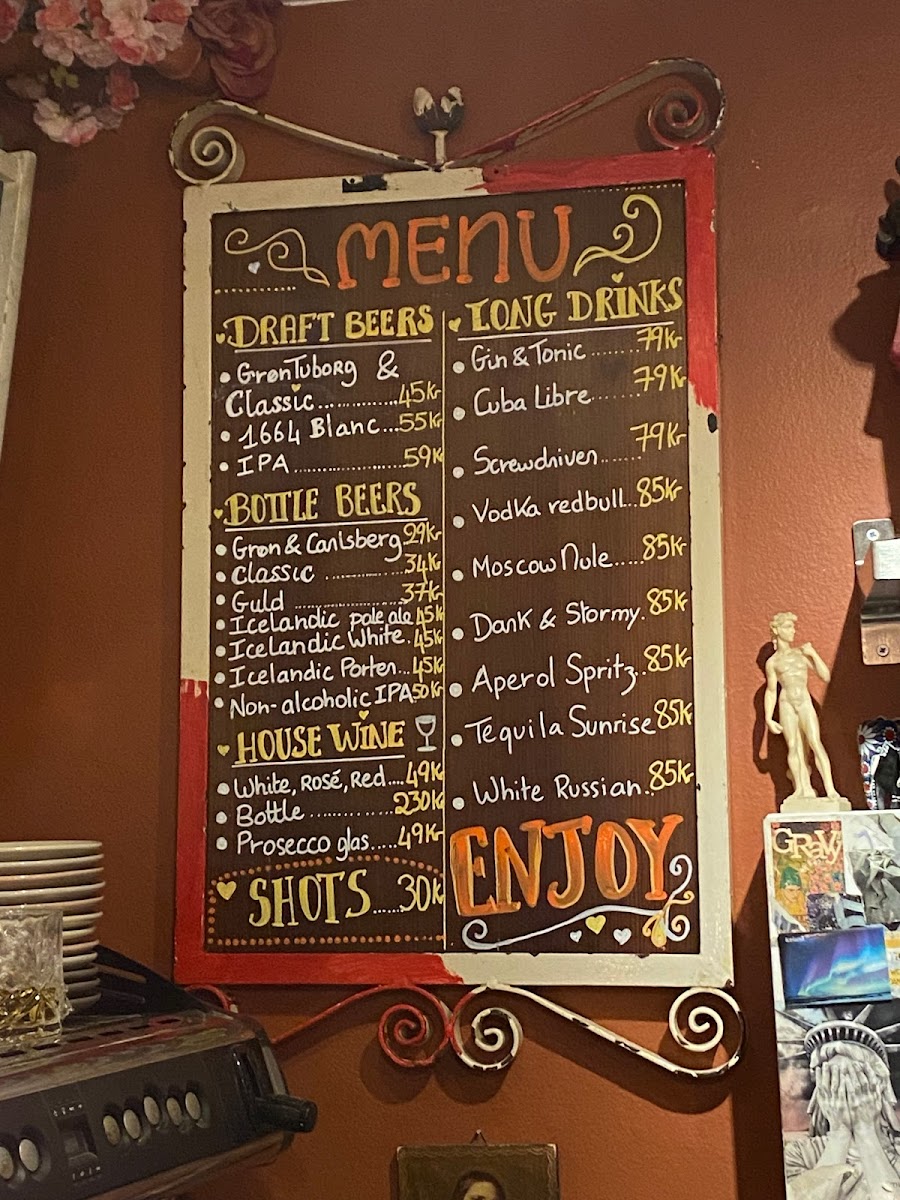 MENU
DRAFT BEERS
GrønTuborg &
Classic..............45Kr
1664 Blanc...55Kr
IPA.....................59K
BOTTLE BEERS
Grøn & Carlsberg 29Kr
Classic ...........34Kr
Guld .....................37Kr
Icelandic pale ale 45Kr
Icelandic White.45Kr
Icelandic Porter...45Kr
Non-alcoholic IPA 50Kr
HOUSE WINE
White, Rosé, Red....49K
Bottle ..............230K
Prosecco glas.....49Kr
SHOTS......30K
LONG DRINKS
Gin & Tonic........79Kr
Cuba Libre.......79Kr
Screwdriver.......79Kr
Vodka redbull...85Kr
Moscow Mule.....85Kr
Dark & Stormy.85Kr
Aperol Spritz..85Kr
Tequila Sunrise 85Kr
White Russian.85Kr
ENJOY
GRaVy